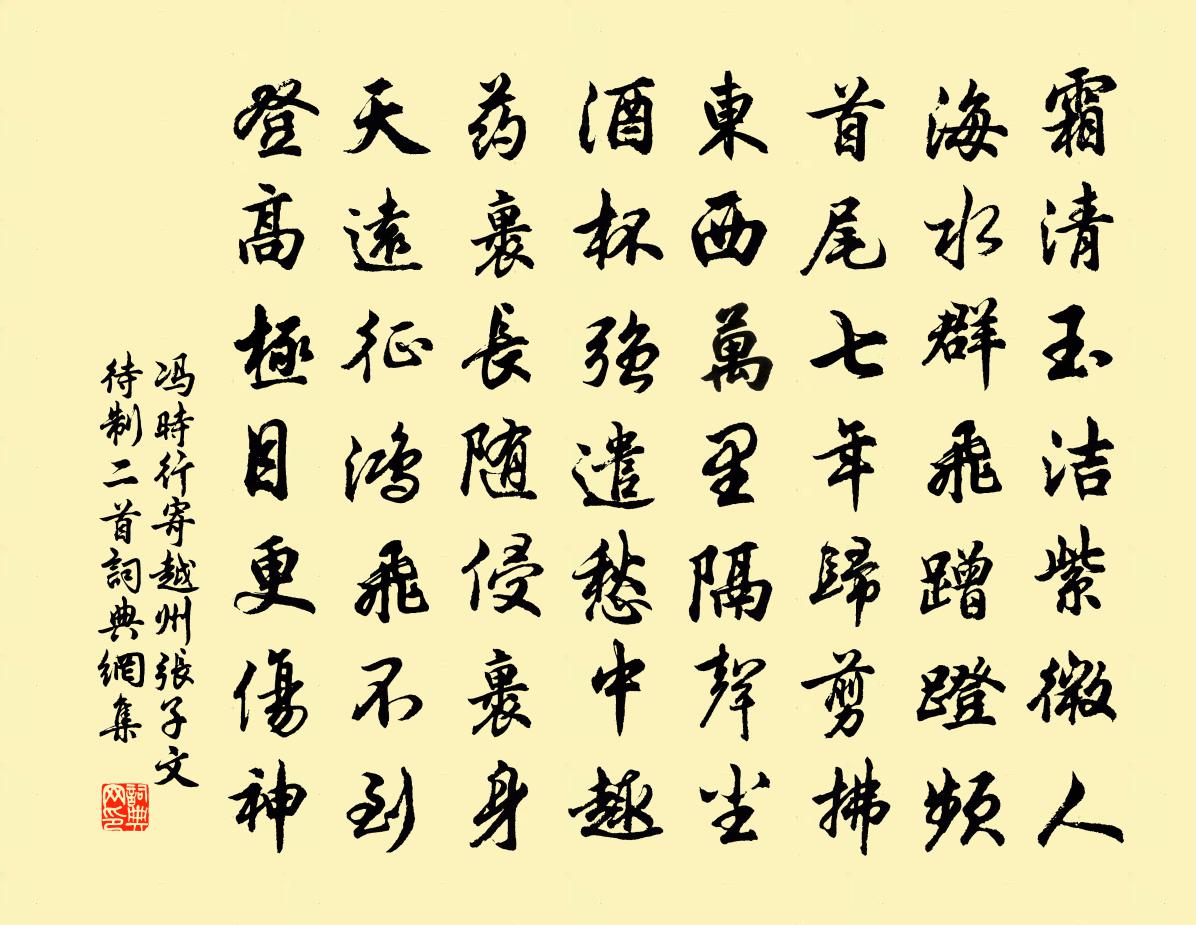 霜清玉洁紫微人
海水群飛蹭蹬頻
首尾七年歸剪拂
東西萬里隔聲塵
酒杯强遣愁中趣
药裹長随侵裹身
天遠征鴻飛不到
登高極目更傷神
冯時行寄越州張子文
待制二首詞典網集
詞典网印